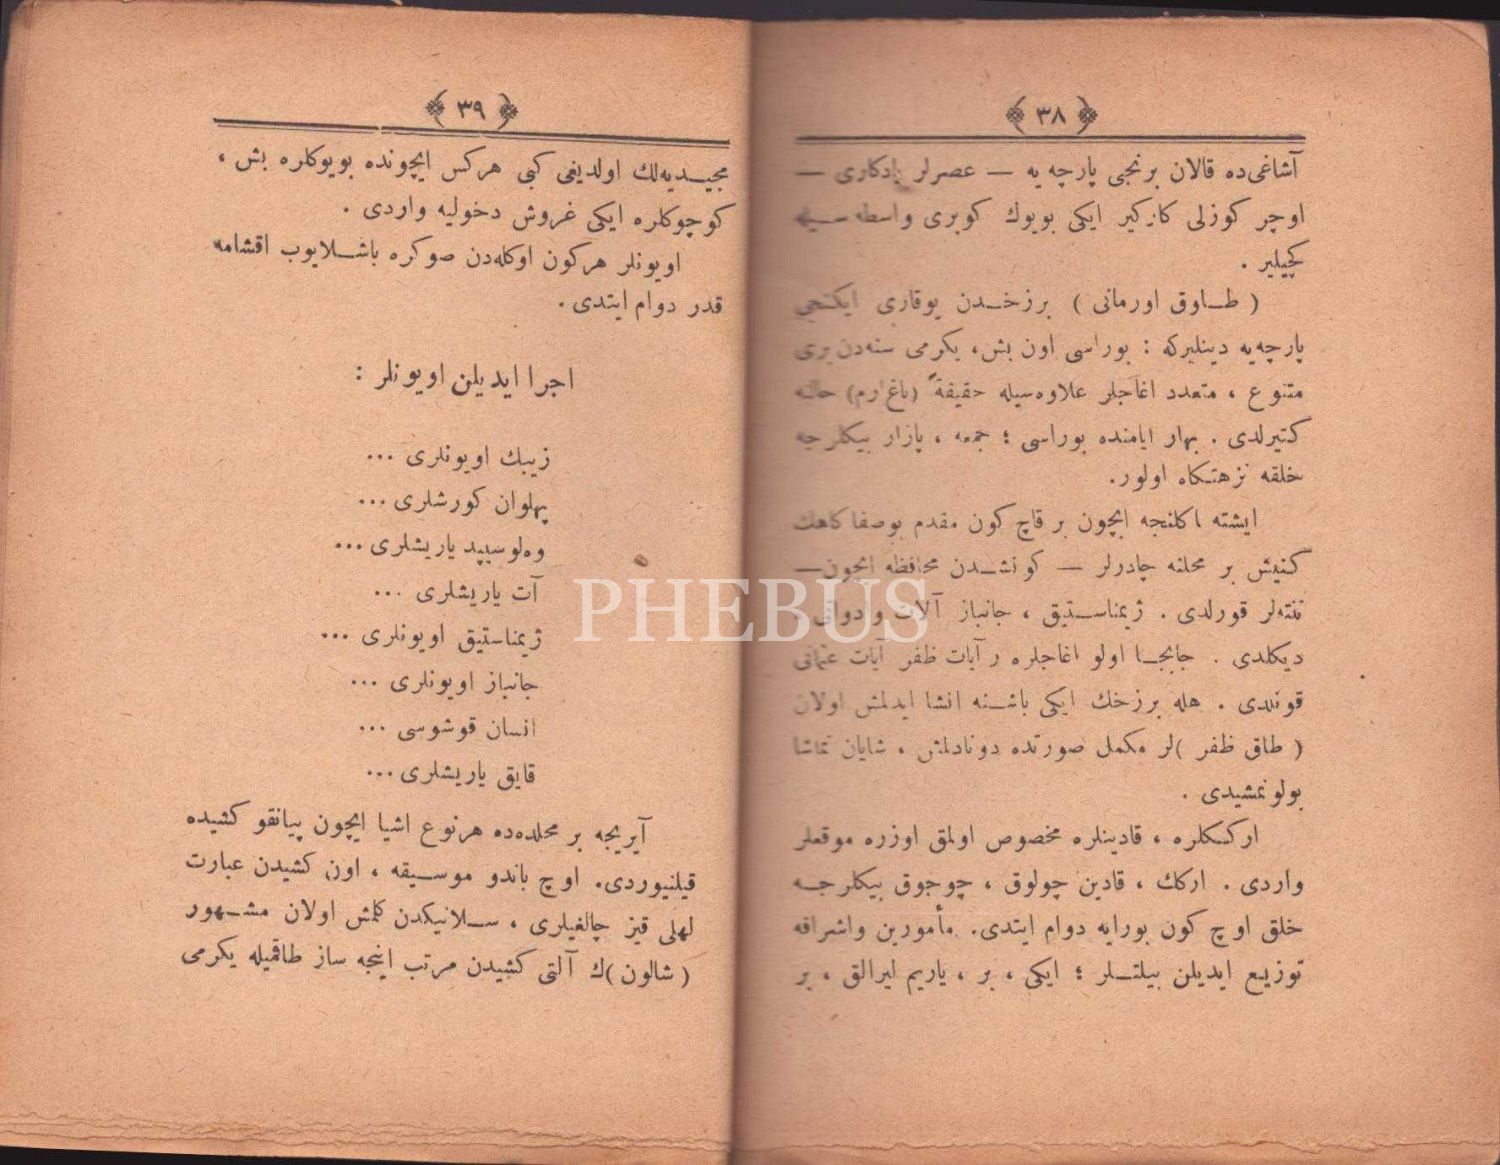 ﴿ ٣٨ ﴾
آشاغی‌ده قالان برنجی پارچه‌یه — عصرلر یادكاری —
اوچر كوزلی كاركیر ایكی بویوك كوپری واسطه‌سیله
كچیلیر .
( طاوق اورمانی ) برزخدن یوقاری ایكنجی
پارچه‌یه دینلیركه : بوراسی اون بش، یكرمی سنه‌دن‌بری
متنوع ، متعدد اغاجلر علاوه‌سیله حقیقةً (باغ‌ارم) حالنه
كتیرلدی . بهار ایامنده بوراسی ؛ جمعه ، پازار بیكلرجه
خلقه نزهتكاه اولور.
ایشته اكلنجه ایچون بر قاچ كون مقدم بوصفاكاهك
كنیش بر محلنه چادرلر — كونشدن محافظه ایچون —
تنته‌لر قورلدی . ژیمناستیق ، جانباز آلات وادواتی
دیكلدی . جابجا اولو اغاجلره رآیات ظفر آیات عثمانی
قونلدی . هله برزخك ایكی باشنه انشا ایدلمش اولان
( طاق ظفر )لر مكمل صورتده دونادلمش ، شایان تماشا
بولونمشیدی .
ارككلره ، قادینلره مخصوص اولمق اوزره موقعلر
واردی . اركك ، قادین چولوق ، چوجوق بیكلرجه
خلق اوچ كون بورایه دوام ایتدی. مأمورین واشرافه
توزیع ایدیلن بیلتلر ؛ ایكی ، بر ، یاریم لیرالق ، بر
﴿ ٣٩ ﴾
مجیدیه‌لك اولدیغی كبی هركس ایچونده بویوكلره بش ،
كوچوكلره ایكی غروش دخولیه واردی .
اویونلر هركون اوكله‌دن صوكره باشلایوب اقشامه
قدر دوام ایتدی .
اجرا ایدیلن اویونلر :
زیبك اویونلری ...
پهلوان كورشلری ...
وه‌لوسپید یاریشلری ...
آت یاریشلری ...
ژیمناستیق اویونلری ...
جانباز اویونلری ...
انسان قوشوسی ...
قایق یاریشلری ...
آیریجه بر محلده‌ده هرنوع اشیا ایچون پیانقو كشیده
قیلنیوردی. اوچ باندو موسیقه ، اون كشیدن عبارت
لهلی قیز چالغیلری ، سلانیكدن كلمش اولان مشهور
( شالون )ك آلتی كشیدن مرتب اینجه ساز طاقمیله یكرمی
PHEBUS